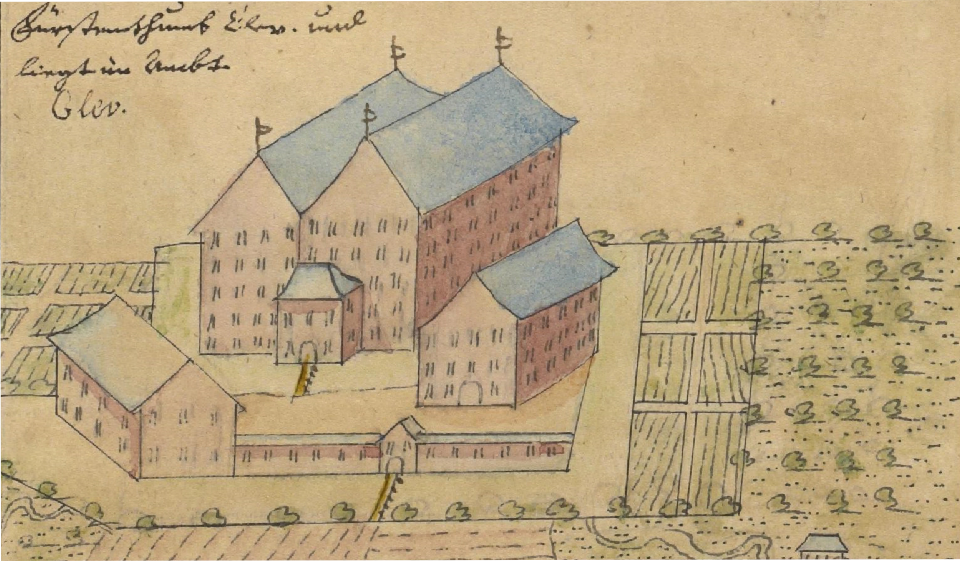 Fürstenthumb Clev. und
liegt im Ambt
Clev.